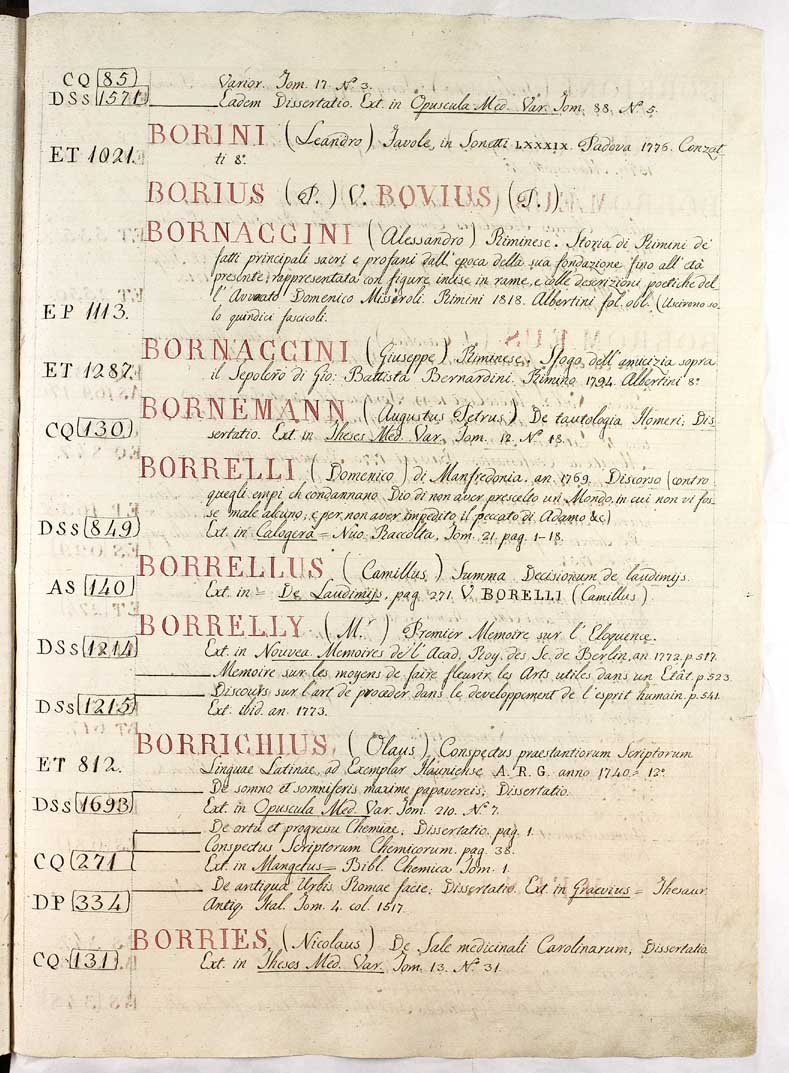 CQ 85 Varior. Tom. 17. Nº 3.
DSs 1571 Eadem Dissertatio. Ext. in Opuscula Med. Var. Tom. 88. Nº 5.
BORINI (Leandro) Tavole, in Sonetti LXXXIX. Padova 1776. Conzat
ET 1021. ti 8º
BORIUS (P.) V. BOVIUS (P.)
BORNACCINI (Alessandro) Riminese. Storia di Rimini de'
fatti principali sacri e profani dall'epoca della sua fondazione fino all'età
presente, rappresentata con figure incise in rame, e colle descrizioni poetiche del
l'Avvocato Domenico Missiroli. Rimini 1818. Albertini fol. obl. (Uscirono so
EP 1113. lo quindici fascicoli.
BORNACCINI (Giuseppe) Riminese. Sfogo dell'amicizia sopra
ET 1287. il Sepolcro di Gio: Battista Bernardini. Rimino 1794. Albertini 8º
BORNEMANN (Augustus Petrus) De tautologia Homeri; Dis
CQ 130 sertatio. Ext. in Theses Med. Var. Tom. 12. Nº 18.
BORRELLI (Domenico) di Manfredonia. an. 1769. Discorso (contro
quegli empi ch condannano Dio di non aver prescelto un Mondo, in cui non vi fos
se male alcuno; e per non aver impedito il peccato di Adamo &c)
DSs 849 Ext. in Calogerà = Nuo. Raccolta, Tom. 21. pag. 1-18.
BORRELLUS (Camillus) Summa Decisionum de laudemijs.
AS 140 Ext. in = De Laudimijs. pag. 271. V. BORELLI (Camillus)
BORRELLY (M.r) Premier Memoire sur l'Eloquence.
DSs 1214 Ext. in Nouvea. Memoires de l'Acad. Roy. des Sc. de Berlin, an. 1772. p. 517.
Memoire sur les moyens de faire fleurir les Arts utiles dans un Etât. p 523.
Discours sur l'art de proceder dans le developpement de l'esprit humain, p. 541.
DSs 1215 Ext. ibid. an. 1773.
BORRICHIUS (Olaus) Conspectus praestantiorum Scriptorum
ET 812. Linguae Latinae, ad Exemplar Hauniense A. R. G. anno 1740. 12º
De somno et somniferis maxime papavereis; Dissertatio.
DSs 1693 Ext. in Opuscula Med. Var. Tom. 210. Nº 7.
De ortu et progressu Chemiae; Dissertatio. pag. 1.
Conspectus Scriptorum Chemicorum. pag. 38.
CQ 271 Ext. in Mangetus = Bibl. Chemica Tom. 1.
De antiqua Urbis Romae facie; Dissertatio. Ext. in Graevius = Thesaur.
DP 334 Antiq. Ital. Tom. 4. col. 1517.
BORRIES (Nicolaus) De Sale medicinali Carolinarum, Dissertatio.
CQ 131 Ext. in Theses Med. Var. Tom. 13. Nº 31.